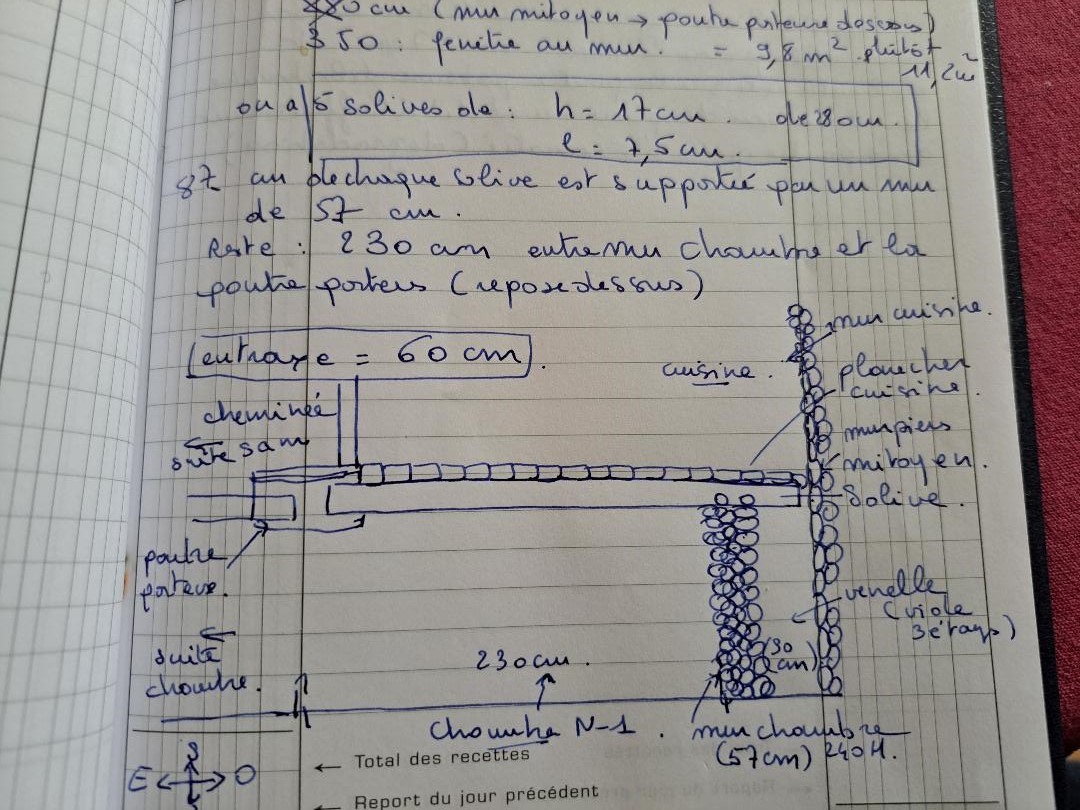 280 cm (mur mitoyen → poutre porteuse dessous)
350 : fenêtre au mur. = 9,8 m² plutôt
11,2 m²
on a 5 solives de : h = 17 cm. de 280 cm.
l = 7,5 cm.
87 cm de chaque solive est supporté par un mur
de 57 cm.
Reste : 230 cm entre mur chambre et la
poutre porteus (repose dessus)
entraxe = 60 cm.
mur cuisine.
cuisine.
plancher
cuisine.
cheminée
suite sam
mur piers
mitoyen.
Solive.
poutre
porteus.
venelle
(viole
3 étays)
suite
chambre.
230 cm.
(30
cm)
Chambre N-1.
mur chambre
(57cm) 240 H.
S
E O
← Total des recettes
← Report du jour précédent